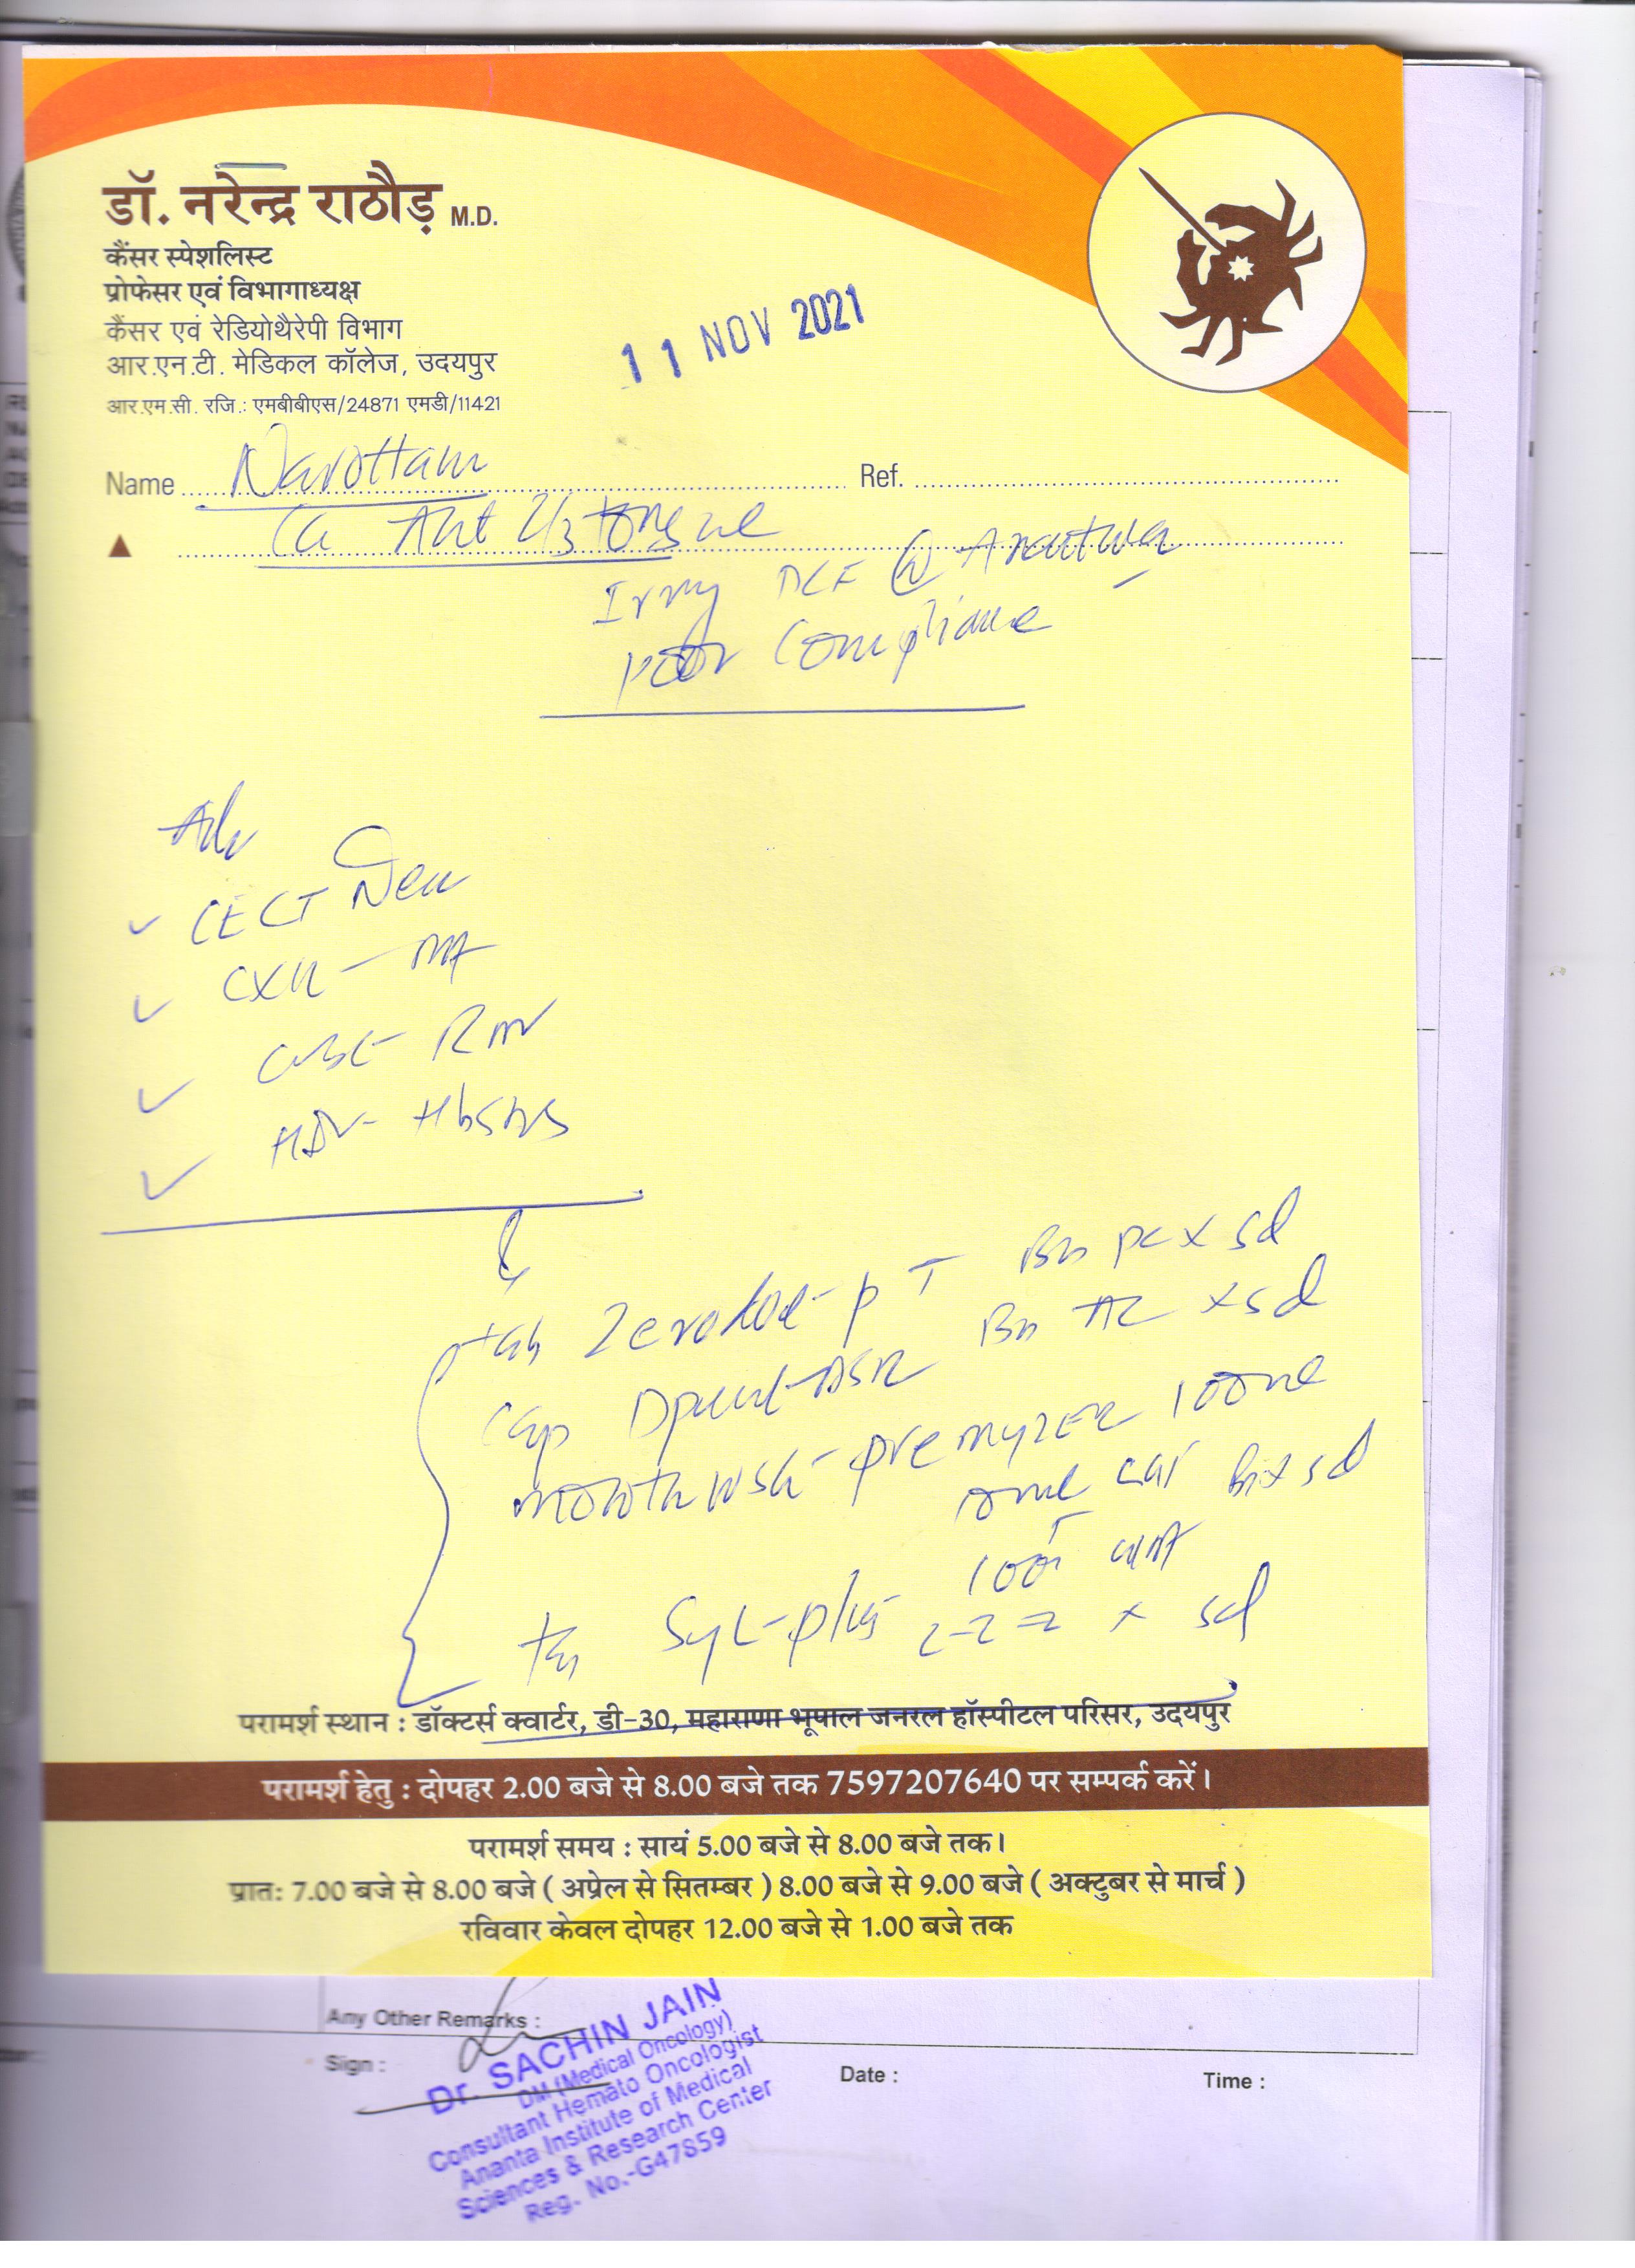 डॉ. नरेन्द्र राठौड़ M.D.
कैंसर स्पेशलिस्ट
प्रोफेसर एवं विभागाध्यक्ष
कैंसर एवं रेडियोथैरेपी विभाग
आर.एन.टी. मेडिकल कॉलेज, उदयपुर
आर.एम.सी. रजि.: एमबीबीएस/24871 एमडी/11421
11 NOV 2021
Name Narottam Ref.
Ca Ant 2/3 tongue
@ Ananta
poor Compliance
Adv
CECT Neck
CXR - PA
CBC
HIV - HbsAg
Tab Zerodol-P T BD PC x 5d
Cap DSR BD AC x 5d
mouth wash 100ml
x 5d
plus 2-2-2 x 5d
परामर्श स्थान : डॉक्टर्स क्वार्टर, डी-30, महाराणा भूपाल जनरल हॉस्पीटल परिसर, उदयपुर
परामर्श हेतु : दोपहर 2.00 बजे से 8.00 बजे तक 7597207640 पर सम्पर्क करें।
परामर्श समय : सायं 5.00 बजे से 8.00 बजे तक।
प्रातः 7.00 बजे से 8.00 बजे ( अप्रेल से सितम्बर ) 8.00 बजे से 9.00 बजे ( अक्टुबर से मार्च )
रविवार केवल दोपहर 12.00 बजे से 1.00 बजे तक
Any Other Remarks :
Sign :
Date :
Time :
Dr. SACHIN JAIN
DM (Medical Oncology)
Consultant Hemato Oncologist
Ananta Institute of Medical
Sciences & Research Center
Reg. No.-G47859